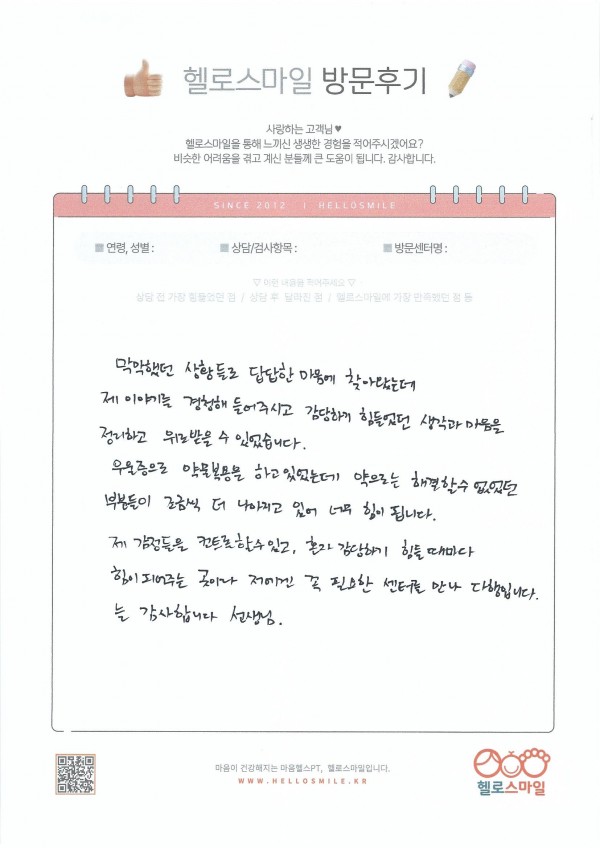 헬로스마일 방문후기
사랑하는 고객님 ♥
헬로스마일을 통해 느끼신 생생한 경험을 적어주시겠어요?
비슷한 어려움을 겪고 계신 분들께 큰 도움이 됩니다. 감사합니다.
SINCE 2012 | HELLOSMILE
■ 연령, 성별 : ■ 상담/검사항목 : ■ 방문센터명 :
▽ 이런 내용을 적어주세요 ▽
상담 전 가장 힘들었던 점 / 상담 후 달라진 점 / 헬로스마일에 가장 만족했던 점 등
막막했던 상황들로 답답한 마음에 찾아왔는데
제 이야기를 경청해 들어주시고 감당하게 힘들었던 생각과 마음을
정리하고 위로받을 수 있었습니다.
우울증으로 약물복용은 하고있었는데 약으로는 해결할수 없었던
부분들이 조금씩 더 나아지고 있어 너무 힘이 됩니다.
제 감정들을 컨트롤할수있고, 혼자 감당하기 힘들 때마다
힘이되어주는 곳이나 저에겐 꼭 필요한 센터를 만나 다행입니다.
늘 감사합니다 선생님.
마음이 건강해지는 마음헬스PT, 헬로스마일입니다.
WWW.HELLOSMILE.KR
헬로스마일